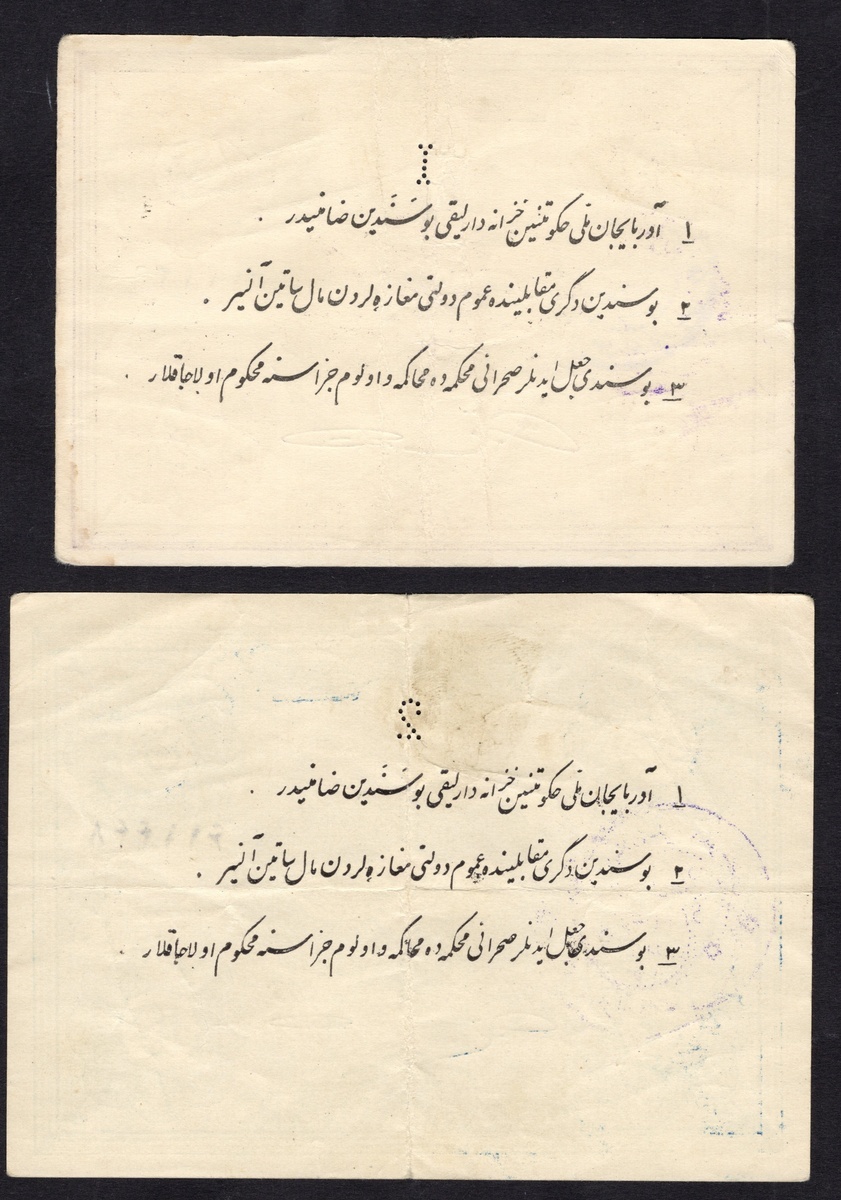 I
١ آذربایجان ملی حکومتینین خزانه دارلیقی بو سَنَدین ضامنیدر .
٢ بو سندین دگری مقابلینده عموم دولتی مغازه‌لردن مال ساتین آلنیر .
٣ بو سندی جعل ایدنلر صحرائی محکمه‌ده محاکمه و اولوم جزاسنه محکوم اولاجاقلار .
2
١ آذربایجان ملی حکومتینین خزانه دارلیقی بو سَنَدین ضامنیدر .
٢ بو سندین دگری مقابلینده عموم دولتی مغازه‌لردن مال ساتین آلنیر .
٣ بو سندی جعل ایدنلر صحرائی محکمه‌ده محاکمه و اولوم جزاسنه محکوم اولاجاقلار .